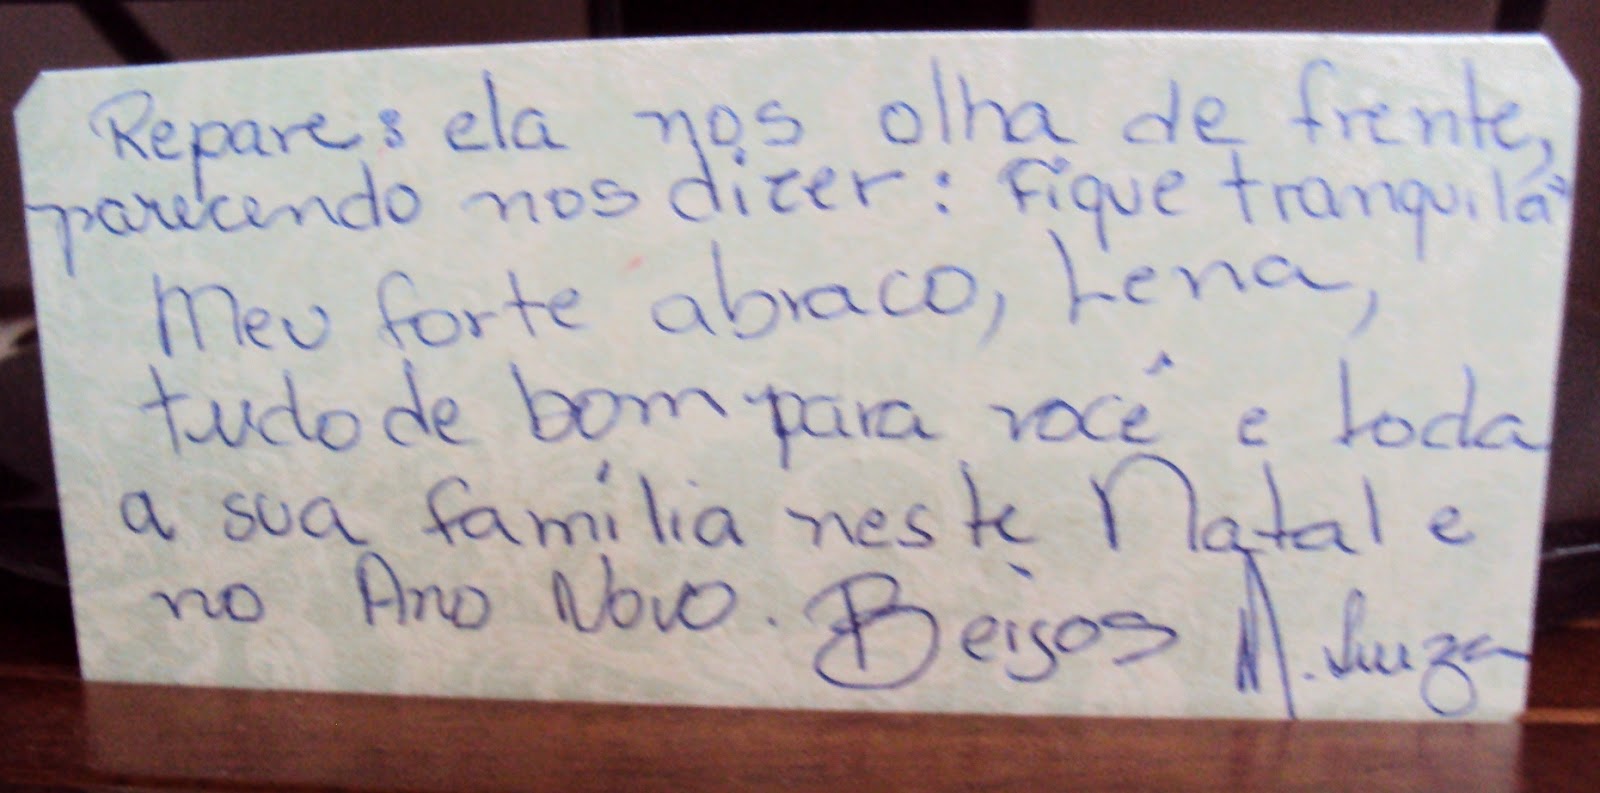 Repare: ela nos olha de frente,
parecendo nos dizer: Fique tranquila"
Meu forte abraco, Lena,
tudo de bom para você e toda
a sua família neste Natal e
no Ano Novo. Beijos M. Luiza